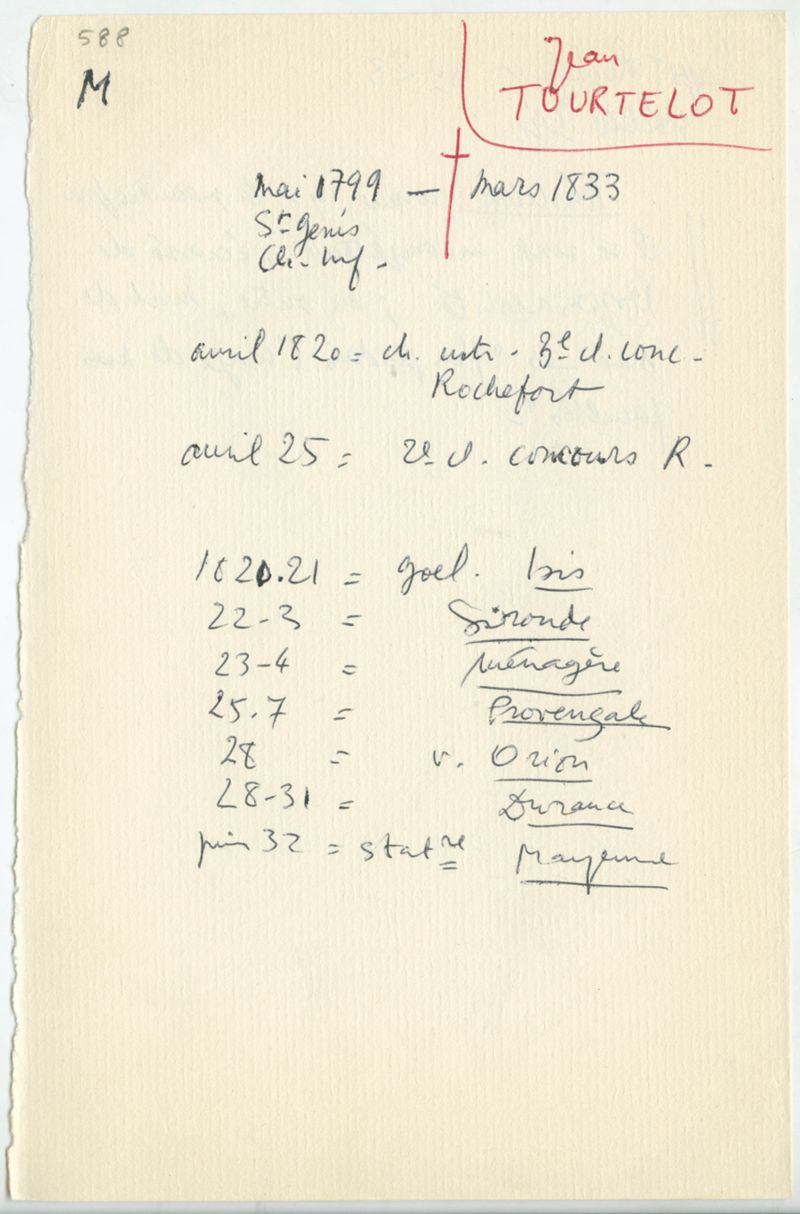 588
M
Jean
TOURTELOT
mai 1799 — † mars 1833
St Genis
Ch. Inf.
avril 1820 = ch. 3e cl. conc.
Rochefort
avril 25 = 2e cl. concours R.
1820.21 = goel. Isis
22-3 = Gironde
23-4 = Ménagère
25.7 = Provençale
28 = v. Orion
28-31 = Durance
juin 32 = statre Mayenne